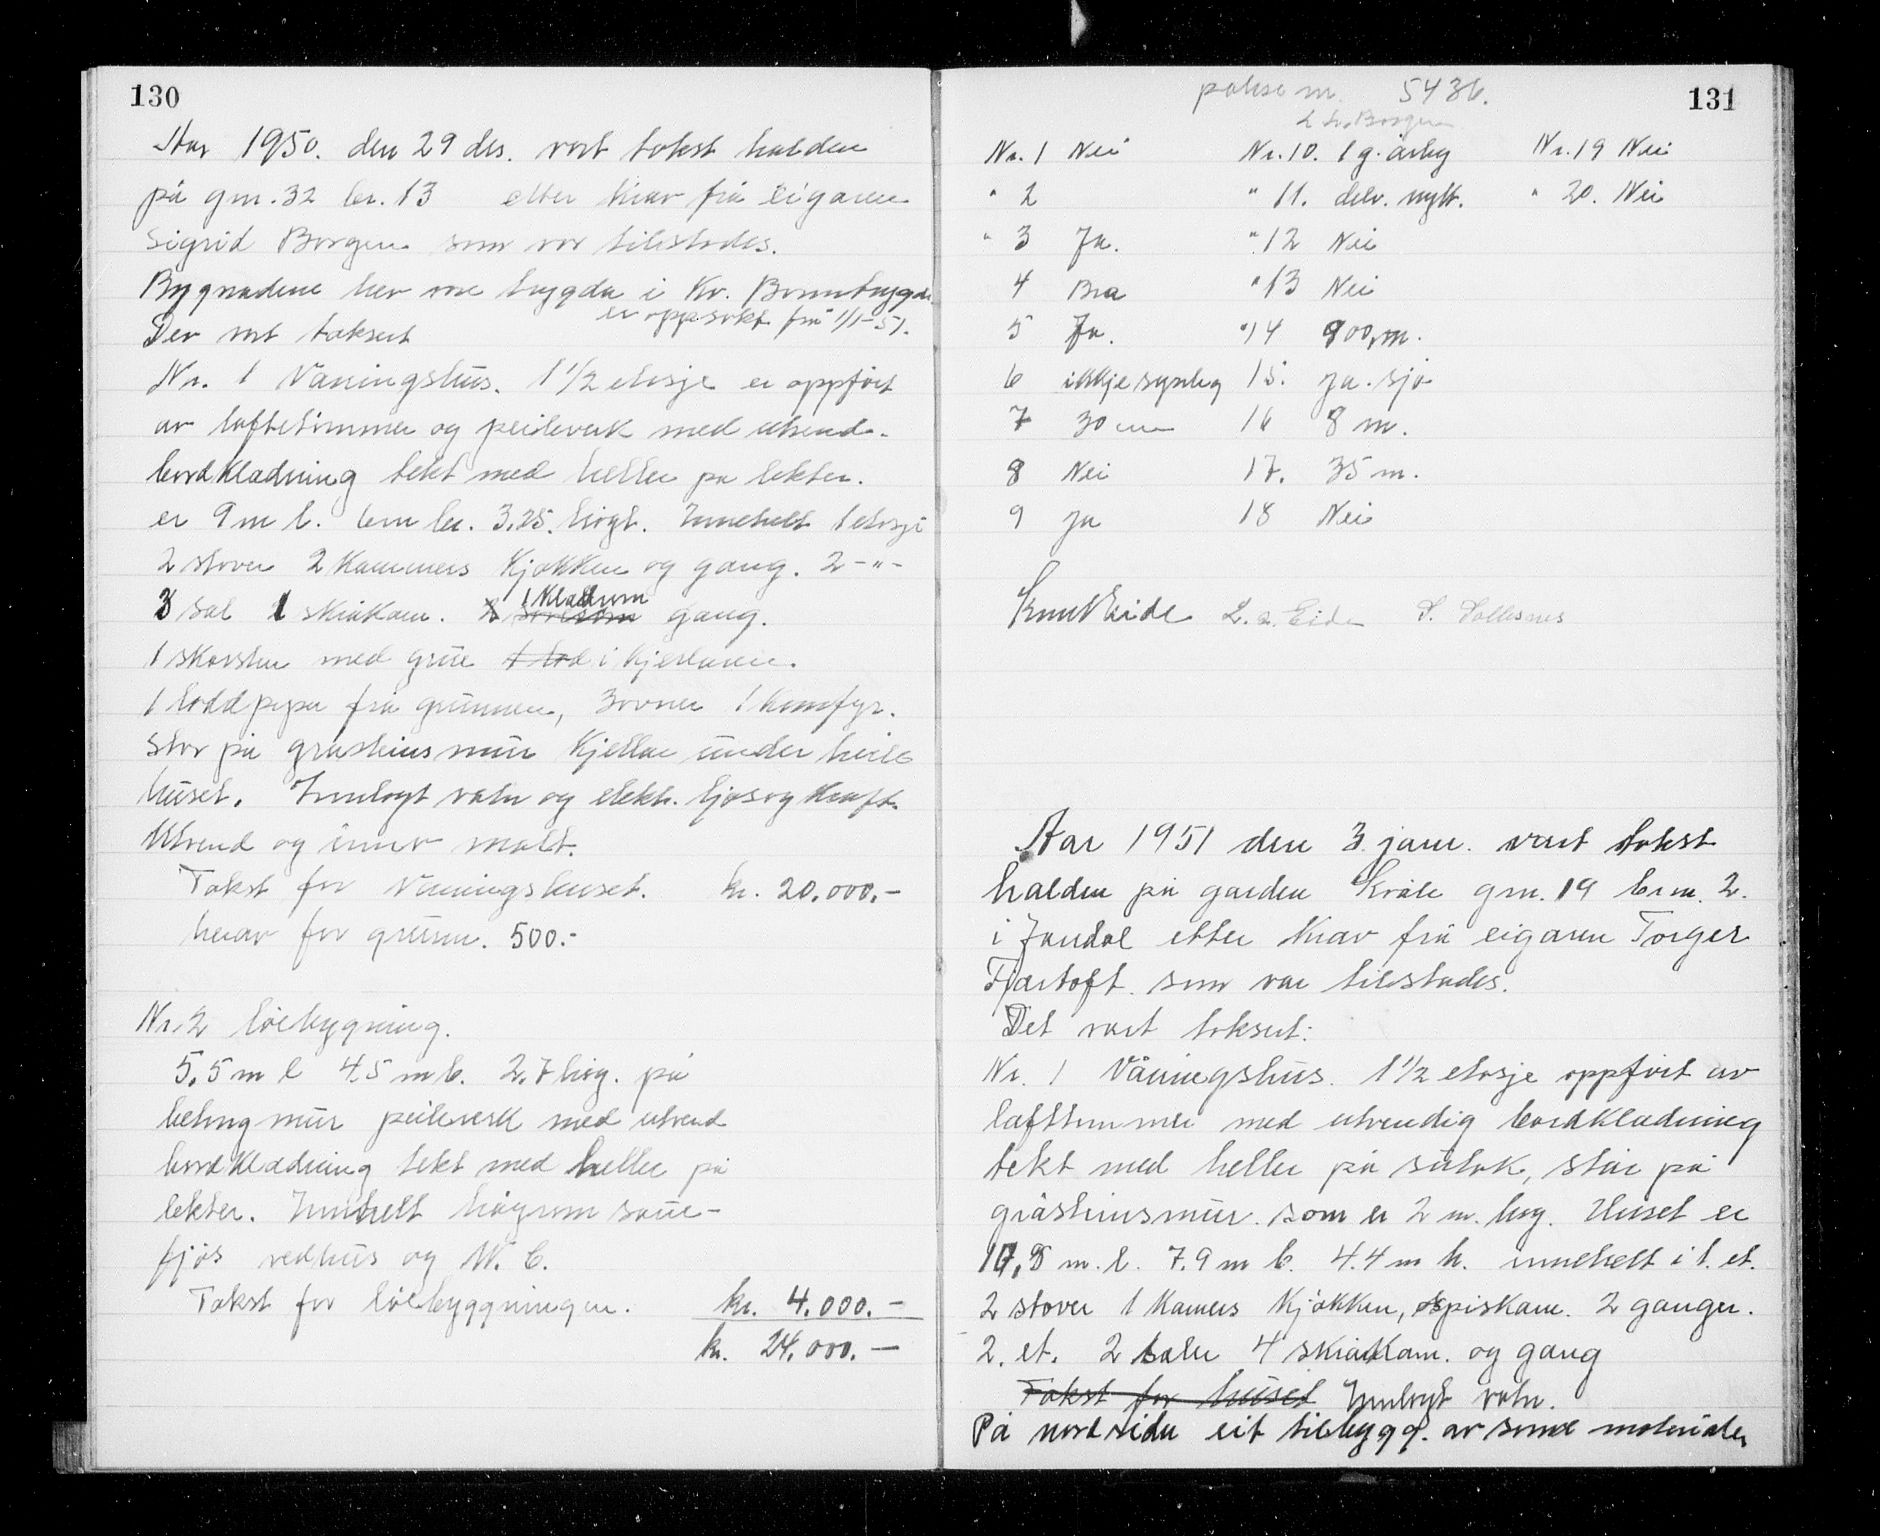 130
Aar 1950. den 29 des. vart takst halden
på gnr. 32 br. 13 etter krav frå eigaren
Sigrid Borgen som var tilstades.
Bygnadene her var trygda i Kr. Brumtrygde
er oppsakt frå 1/1-51.
Der vart taksert
Nr. 1 Våningshus. 1 1/2 etasje er oppført
av laftetømmer og peileverk med utvend.
bordkledning tekt med heller på lekter.
er 9 m l. 6 m br. 3,25 høgt. Innehelt 1 etasje
2 stover 2 kammers kjøkken og gang. 2 -"-
3 sal 1 skråkam. 1 kladrum gang.
1 skorstein med grue i kjellaren.
1 loddpipe frå grunnen, 3 ovner 1 komfyr.
Står på gråsteinsmur kjellar under heile
huset. Innlagt vatn og elektr. ljos og kraft.
Utvend og innv malt.
Takst for Våningshuset. kr. 20.000.-
herav for grunn. 500.-
Nr. 2 løebygning.
5,5 m l 4.5 m b. 2,7 høg. på
betongmur peileverk med utvend
bordkledning tekt med heller på
lekter. Innhelt høyrom saue-
fjøs vedhus og W. C.
Takst for løebyggningen. kr. 4.000.-
kr. 24.000.-
131
polise nr. 5436.
Borgen
Nr. 1 Nei Nr. 10. 1 g. årleg Nr. 19 Nei
" 2 " 11. delv. nytt. " 20. Nei
" 3 Ja. " 12 Nei
4 Bra " 13 Nei
5 Ja. " 14 900 m.
6 ikkje synleg 15. ja. sjø
7 30 cm 16 8 m.
8 Nei 17. 35 m.
9 ja 18 Nei
Knut Eide L. a. Eide S. Sollesnes
Aar 1951 den 3. jan. vart takst
halden på garden Kråle gnr. 19 brnr. 2.
i Jondal etter krav frå eigaren Torger
Fjærtoft som var tilstades.
Det vart taksert:
Nr. 1 Våningshus. 1 1/2 etasje oppført av
lafttømmer med utvendig bordkledning
tekt med heller på sutak, står på
gråsteinsmur som er 2 m. høg. Huset er
10,8 m. l. 7.9 m b. 4.4 m h. innehelt i 1. et.
2 stover 1 kamers kjøkken, spiskam. 2 ganger.
2. et. 2 saler 4 skråkam. og gang
Takst for huset Innlagt vatn.
På nordsida eit tilbygg. av same materialer